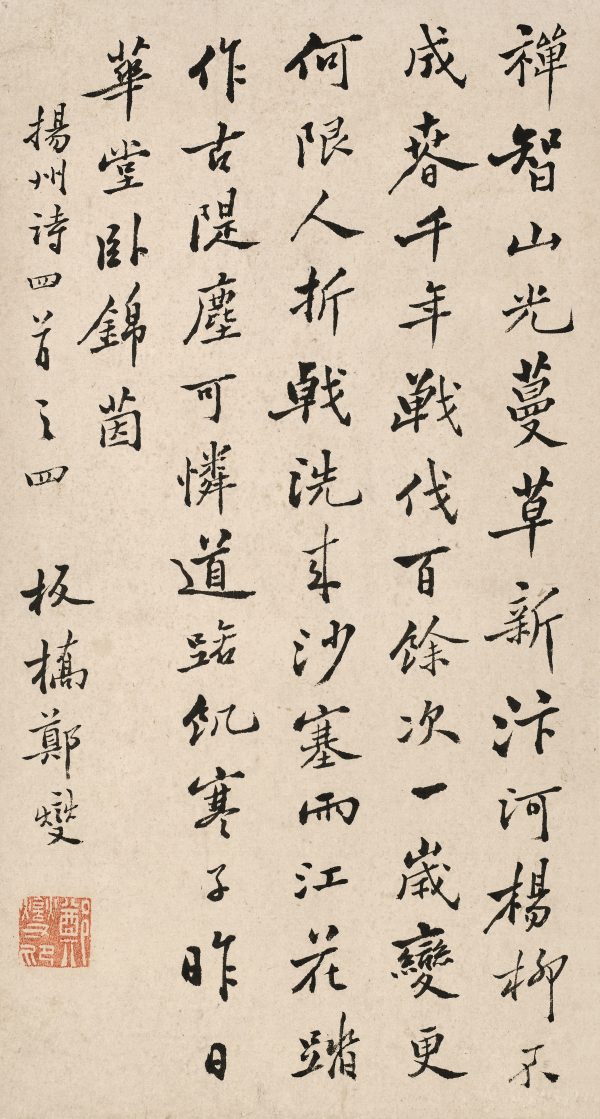 禪智山光蔓草新汴河楊柳不
成春千年戰伐百餘次一歲變更
何限人折戟洗來沙塞雨江花踏
作古隄塵可憐道路飢寒子昨日
華堂卧錦茵
揚州詩四首之四 板橋鄭燮